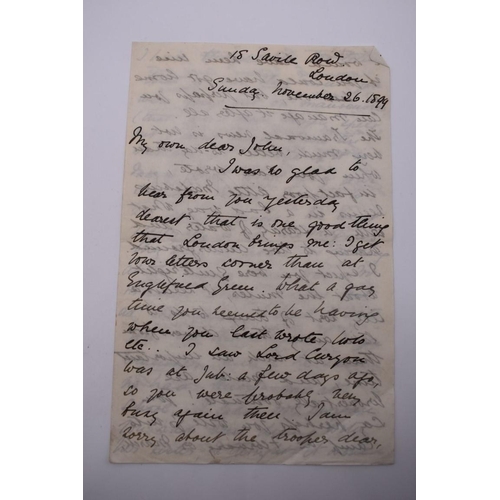 18 Savile Row.
London
Sunday November 26. 1899
My own dear John,
I was so glad to
hear from you yesterday
dearest that is one good thing
that London brings me: I get
your letters sooner than at
Englefield Green. What a gay
time you seemed to be having
when you last wrote,
etc.. I saw Lord Curzon
was at Jub: a few days ago,
so you were probably very
busy again then. I am
sorry about the trooper dear,